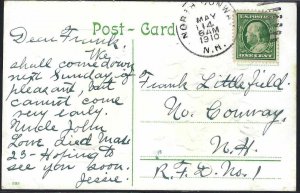 Post-Card
NORTH CONWAY
MAY
14
8AM
1910
N.H.
Dear Frank. We
shall come down
next Sunday if
pleasant, but
cannot come
very early.
Uncle John
Love died Mar
23 - Hoping to
see you soon.
Jessie.
Frank Littlefield
No. Conway
N.H.
R.F.D. No. 1